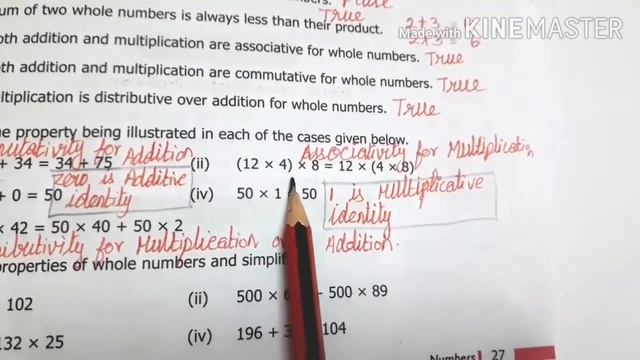 um of two whole numbers is always less than their product. True
2+3 = 5
2×3 = 6
Made with KINEMASTER
oth addition and multiplication are associative for whole numbers. True
th addition and multiplication are commutative for whole numbers. True
ltiplication is distributive over addition for whole numbers. True
he property being illustrated in each of the cases given below.
mutativity for Addition Associativity for Multiplication
+ 34 = 34 + 75 (ii) (12 × 4) × 8 = 12 × (4 × 8)
+ 0 = 50 zero is Additive identity (iv) 50 × 1 50 1 is Multiplicative identity
× 42 = 50 × 40 + 50 × 2
tributivity for Multiplication Addition.
properties of whole numbers and simplif
102 (ii) 500 × 6 – 500 × 89
132 × 25 (iv) 196 + 3 104
Numbers 27